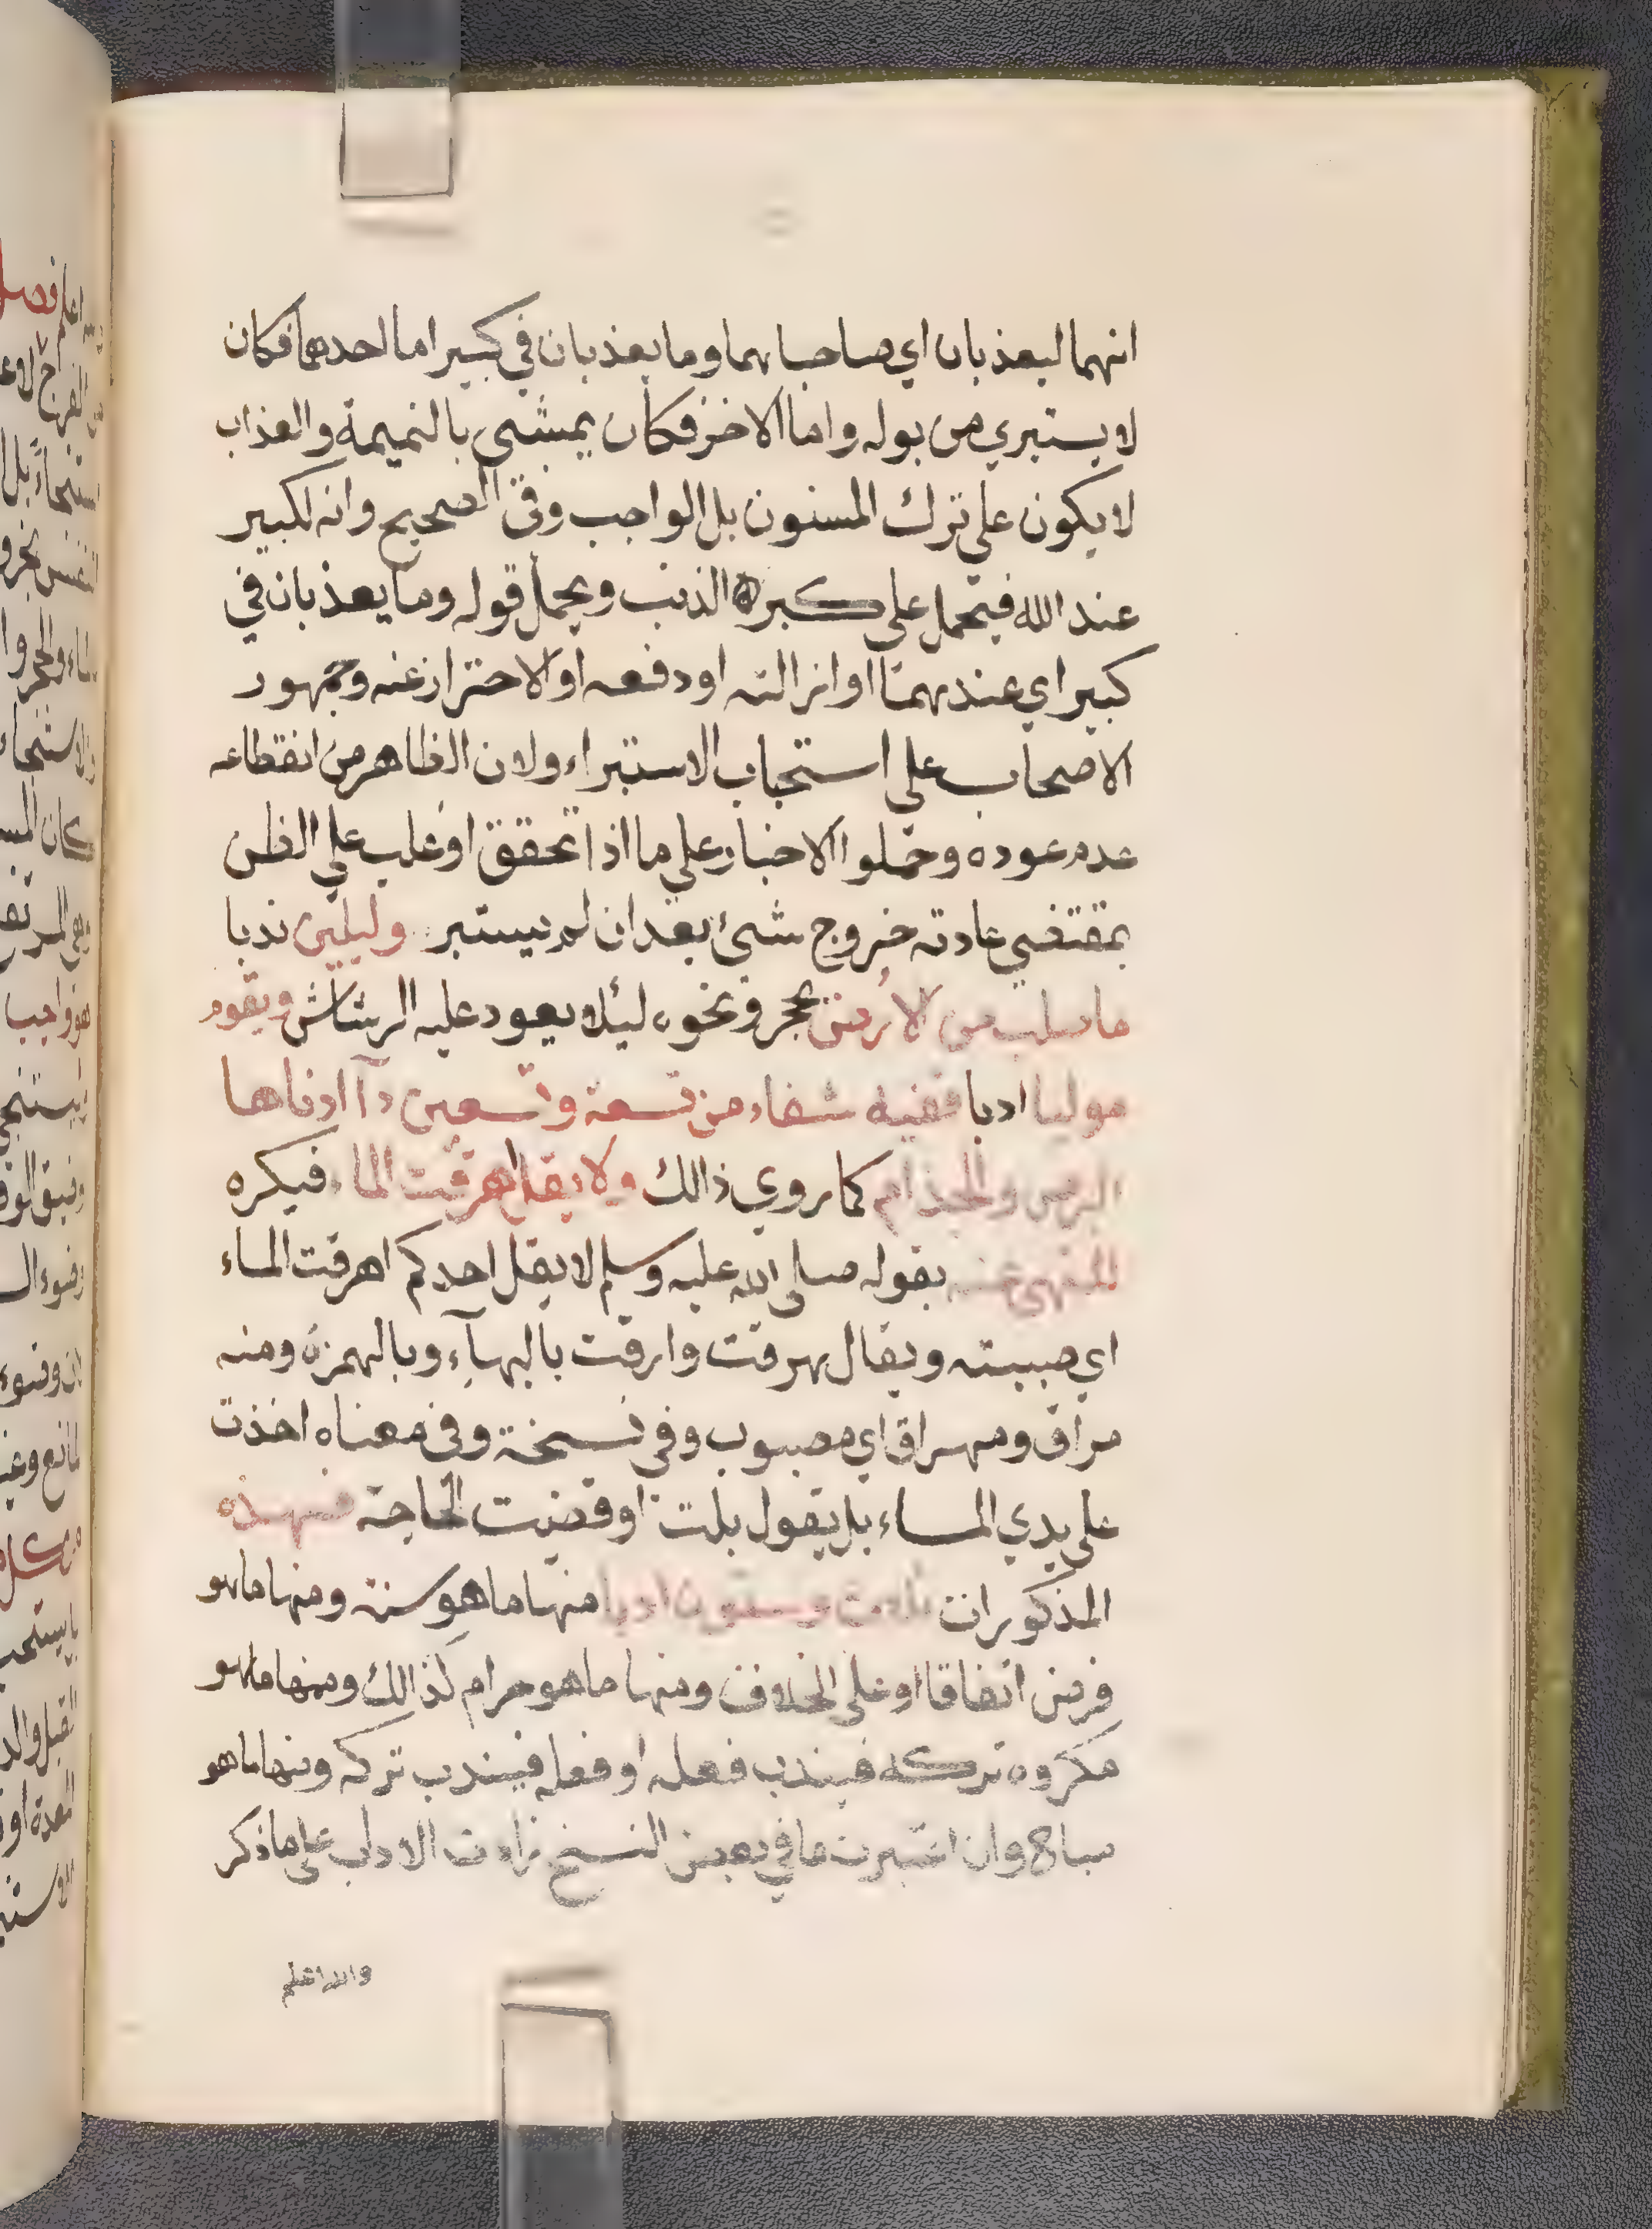 انهما ليعذبان اي صاحباهما وما يعذبان في كبير اما احدهما فكان
لا يستبري من بوله واما الاخر فكان يمشي بالنميمة والعذاب
لا يكون على ترك المسنون بل الواجب وفي الصحيح وانه لكبير
عند الله فيحمل على كبر الذنب ويحمل قوله وما يعذبان في
كبير اي عندهما او ازالته او دفعه او الاحتراز عنه وجمهور
الاصحاب على استحباب الاستبراء ولان الظاهر من انقطاعه
عدم عوده وحملوا الاخبار على ما اذا تحقق او غلب على الظن
بمقتضي عادته خروج شيئ بعد ان لم يستبر وليلين ندبا
ما صلب من الارض بحجر ونحوه ليئلا يعود عليه الرشاش ويقوم
موليا ادبا ففيه شفاء من تسعة وتسعين دآ ادناها
البرص والجذام كما روي ذالك ولا يقل اهرقت الماء فيكره
للنهي عنه بقوله صلى الله عليه وسلم لا يقل احدكم اهرقت الماء
اي صببته ويقال هرقت وارقت بالهآء وبالهمزة ومنه
مراق ومهراق اي مصبوب وفي نسخة وفي معناه اخذت
على يدي الماء بل يقول بلت او قضيت الحاجة فهذه
المذكورات وستون ادبا منها ما هو سنة ومنها ما هو
فرض اتفاقا او على الخلاف ومنها ما هو حرام كذالك ومنها ما هو
مكروه تركه فيندب فعله او فعله فيندب تركه ومنها ما هو
مباح وان اعتبرت ما في بعض النسخ زادت الاداب على ما ذكر
والله اعلم